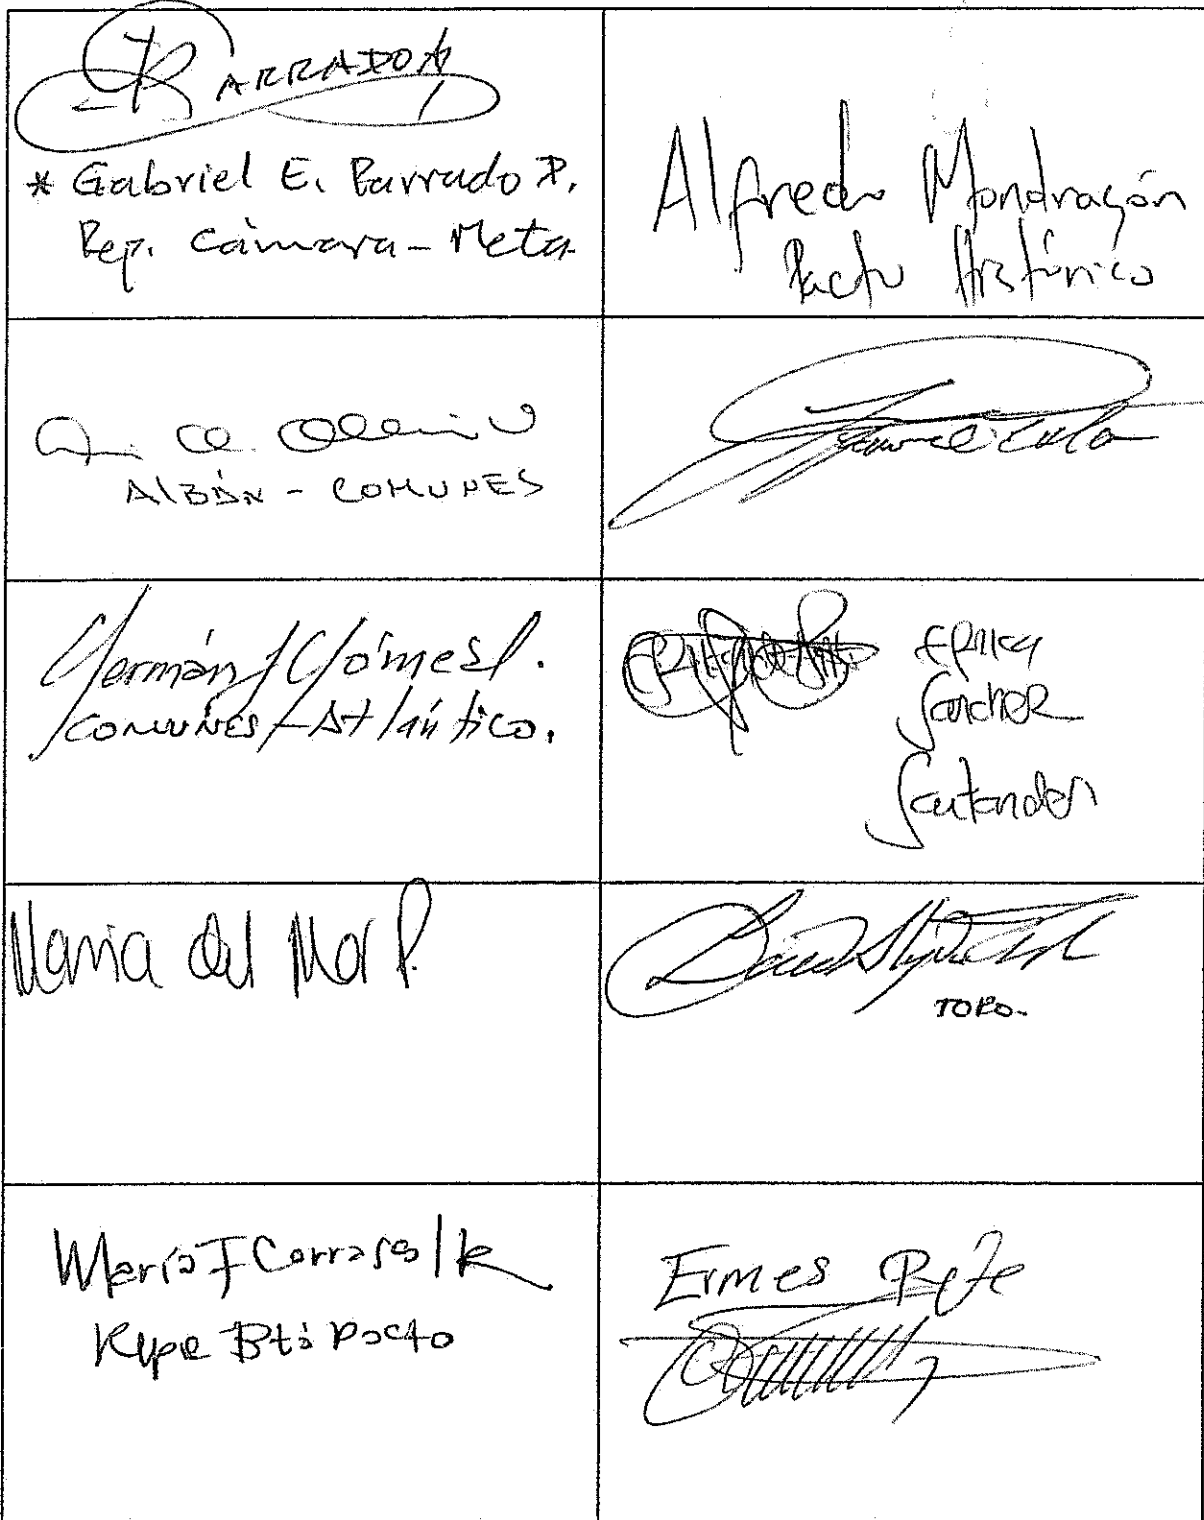 BARRADO
* Gabriel E. Parrado P.
Rep. Cámara - Meta
Alfredo Mondragón
Pacto Histórico
AlBÁN - COMUNES
Germán J Gómez l.
COMUNES - Atlántico.
ERIKA
Sanchez
Santander
Maria del Mar P.
TORO.
María F Carrascal R
Repre Btá Pacto
Ermes Pete